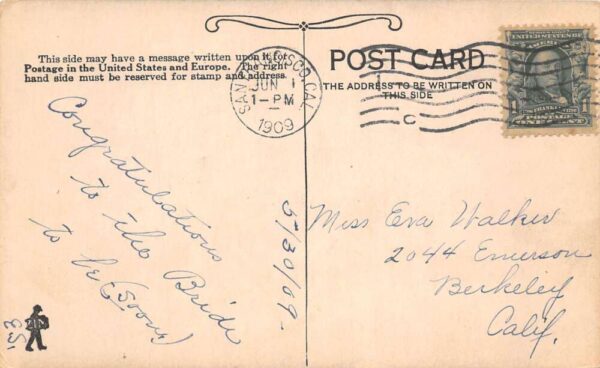 This side may have a message written upon it for
Postage in the United States and Europe. The right
hand side must be reserved for stamp and address.
SAN FRANCISCO, CAL.
JUN 1
1-PM
1909
POST CARD
THE ADDRESS TO BE WRITTEN ON
THIS SIDE
1
C
FRANKLIN
POSTAGE
ONE CENT
Congratulations
to the Bride
to be (soon)
5/30/09-
Miss Eva Walker
2044 Emerson
Berkeley
Calif.